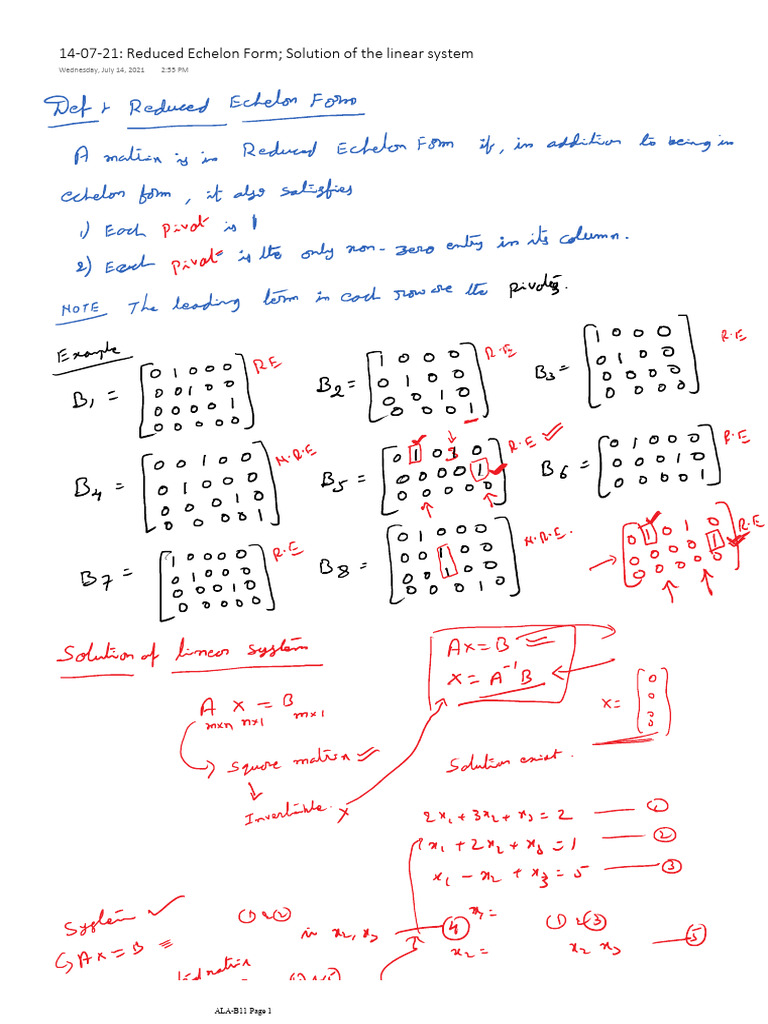 14-07-21: Reduced Echelon Form; Solution of the linear system
Wednesday, July 14, 2021 2:55 PM
Def: Reduced Echelon Form
A matrix is in Reduced Echelon Form if, in addition to being in
echelon form, it also satisfies
1) Each pivot is 1
2) Each pivot is the only non-zero entry in its column.
NOTE The leading term in each row are the pivots.
Example
B1 = [0 1 0 0 0; 0 0 1 0 0; 0 0 0 0 1; 0 0 0 0 0] R.E
B2 = [1 0 0 0; 0 1 0 0; 0 0 1 0; 0 0 0 1] R.E
B3 = [1 0 0 0; 0 1 0 0; 0 0 0 0; 0 0 0 0] R.E
B4 = [0 0 1 0 0; 0 1 0 0 0; 0 0 0 1 0; 0 0 0 0 1] N.R.E
B5 = [0 1 0 3 0; 0 0 0 0 1; 0 0 0 0 0] R.E ✓
B6 = [0 1 0 0 0; 0 0 0 1 0; 0 0 0 0 1] R.E
B7 = [1 0 0 0 0; 0 1 0 0 0; 0 0 0 1 0; 0 0 0 0 0] R.E
B8 = [0 1 0 0 0; 0 0 1 0 0; 0 0 1 0 0; 0 0 0 1 0] N.R.E.
[0 1 0 1 0; 0 0 0 0 1; 0 0 0 0 0] R.E
Solution of linear system
AX = B
X = A⁻¹B
A X = B
m×n n×1 m×1
X = [0; 0; 0]
Square matrix ✓
Solution exist.
Invertible.
2x1 + 3x2 + x3 = 2 — ①
x1 + 2x2 + x3 = 1 — ②
x1 - x2 + x3 = 5 — ③
System ✓
① & ②
in x2, x3 — ④
x1 =
① & ③
AX = B
x2 =
x2 x3 — ⑤
matrix
ALA-B11 Page 1